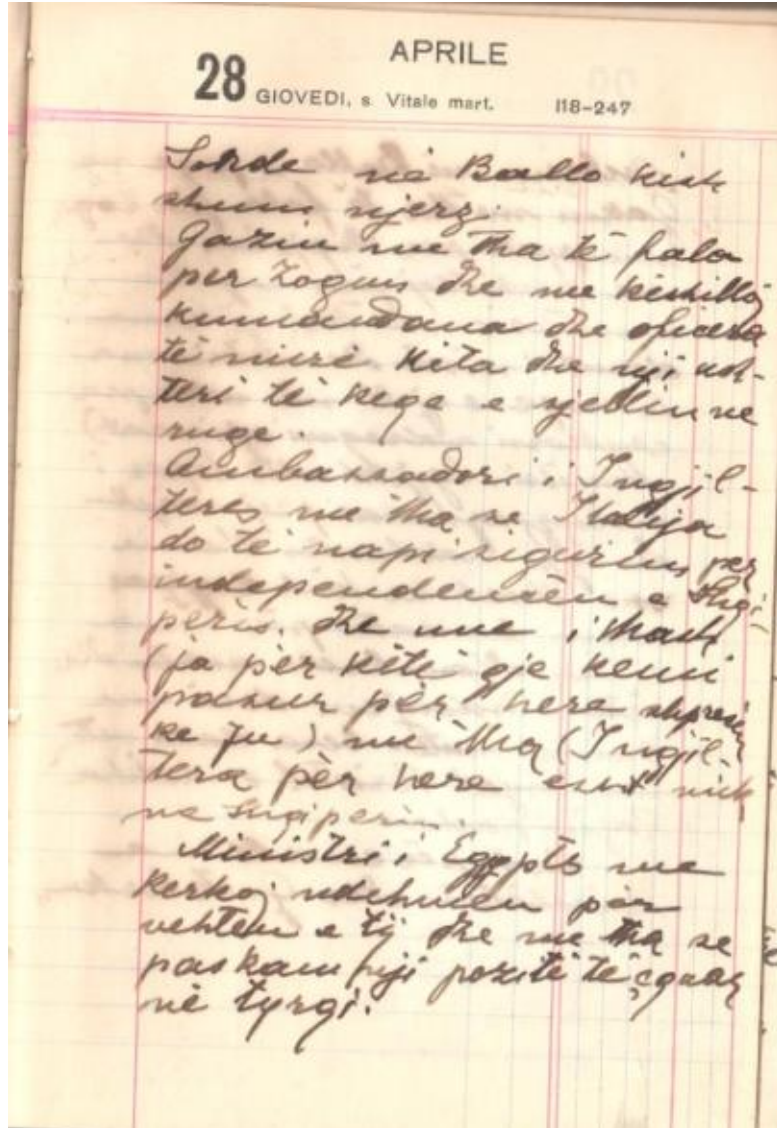 APRILE
28 GIOVEDI, s. Vitale mart. 118-247
Sonde nè Ballo kish
shum njerz.
Gaziu me tha tè fala
per Zogun dhe me këshilloj
kumandana dhe oficera
tè mirè kita dhe nji ush-
teri tè keqe e sjellin ne
ruge.
Ambassadori i Ingil-
teres me tha se Italija
do tè napi sigurim per
independencèn e Shqi-
pèris. dhe une i thash
(ja pèr kitè gje kemi
pasur pèr here shpresen
ke ju) me tha (Ingil-
tera pèr here esht mik
me Shqiperin.
Ministri i Egypts me
kerkoj ndihmen pèr
vehten e tij dhe me tha se
paskam nji pozitè tè çquar
nè tyrqi.